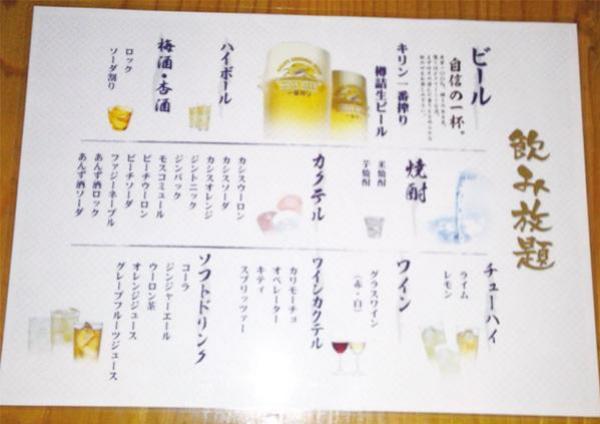 飲み放題
ビール
自信の一杯。
キリン一番搾り
樽詰生ビール
ハイボール
梅酒・杏酒
ロック
ソーダ割り
焼酎
米焼酎
芋焼酎
カクテル
カシスウーロン
カシスソーダ
カシスオレンジ
ジントニック
ジンバック
モスコミュール
ピーチウーロン
ピーチソーダ
ファジーネーブル
あんず酒ロック
あんず酒ソーダ
チューハイ
ライム
レモン
ワイン
グラスワイン
(赤・白)
ワインカクテル
カリモーチョ
オペレーター
キティ
スプリッツァー
ソフトドリンク
コーラ
ジンジャーエール
ウーロン茶
オレンジジュース
グレープフルーツジュース